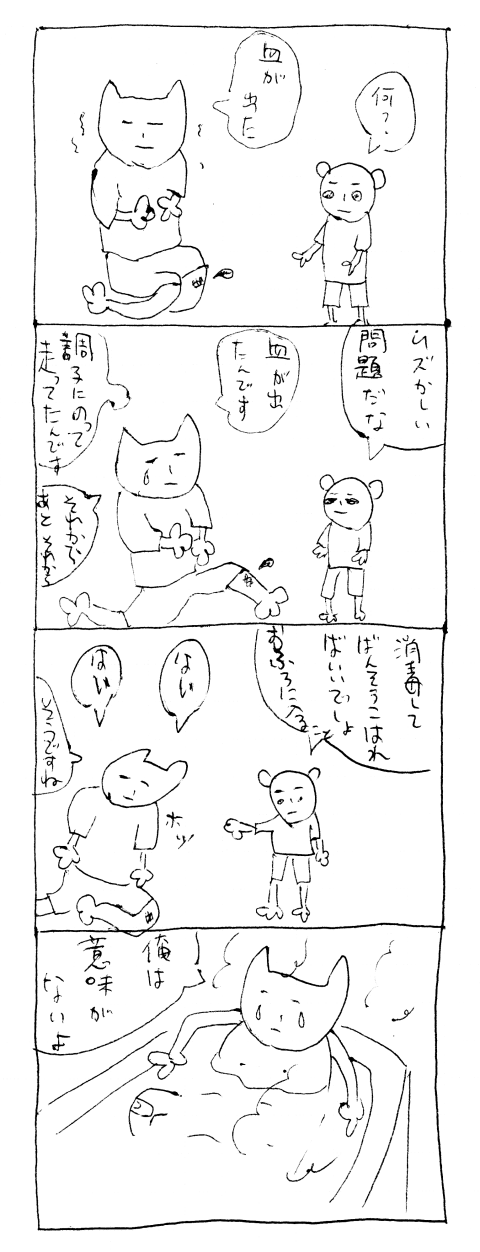 何?
血が
出た
ムズかしい
問題だな
血が出
たんです
調子にのって
走ってたんです
それから
あと それから
消毒して
ばんそうこはれ
ばいいでしょ
おふろに入ること
はい
はい
そうですね
ホッ
俺は
意味が
ないよ